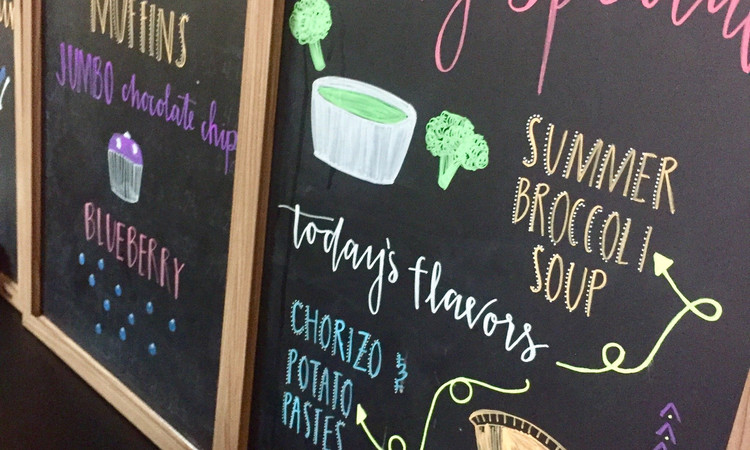 MUFFINS
JUMBO chocolate chip
BLUEBERRY
SUMMER
BROCCOLI
SOUP
today's flavors
CHORIZO &
POTATO
PASTES